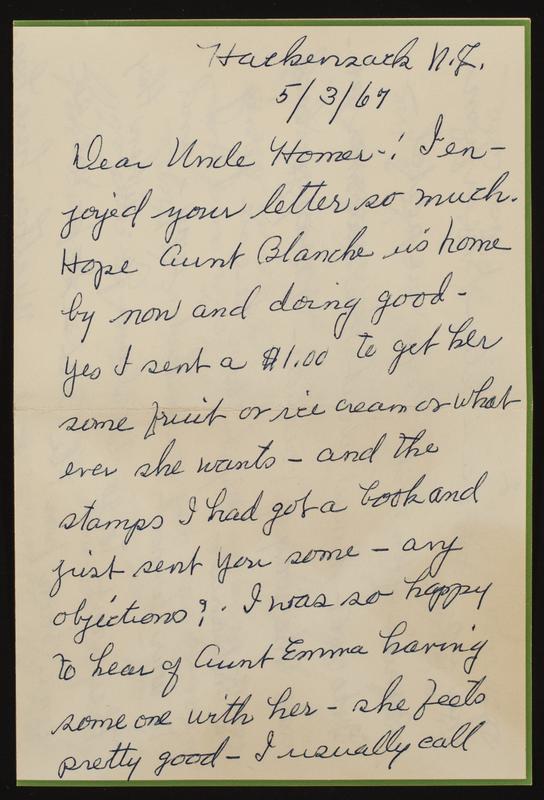 Hackensack N.J.
5/3/67
Dear Uncle Homer-! I en-
joyed your letter so much.
Hope Aunt Blanche is home
by now and doing good-
Yes I sent a $1.00 to get her
some fruit or ice cream or what
ever she wants - and the
stamps I had got a book and
just sent you some - any
objections?. I was so happy
to hear of Aunt Emma having
some one with her - she feels
pretty good - I usually call